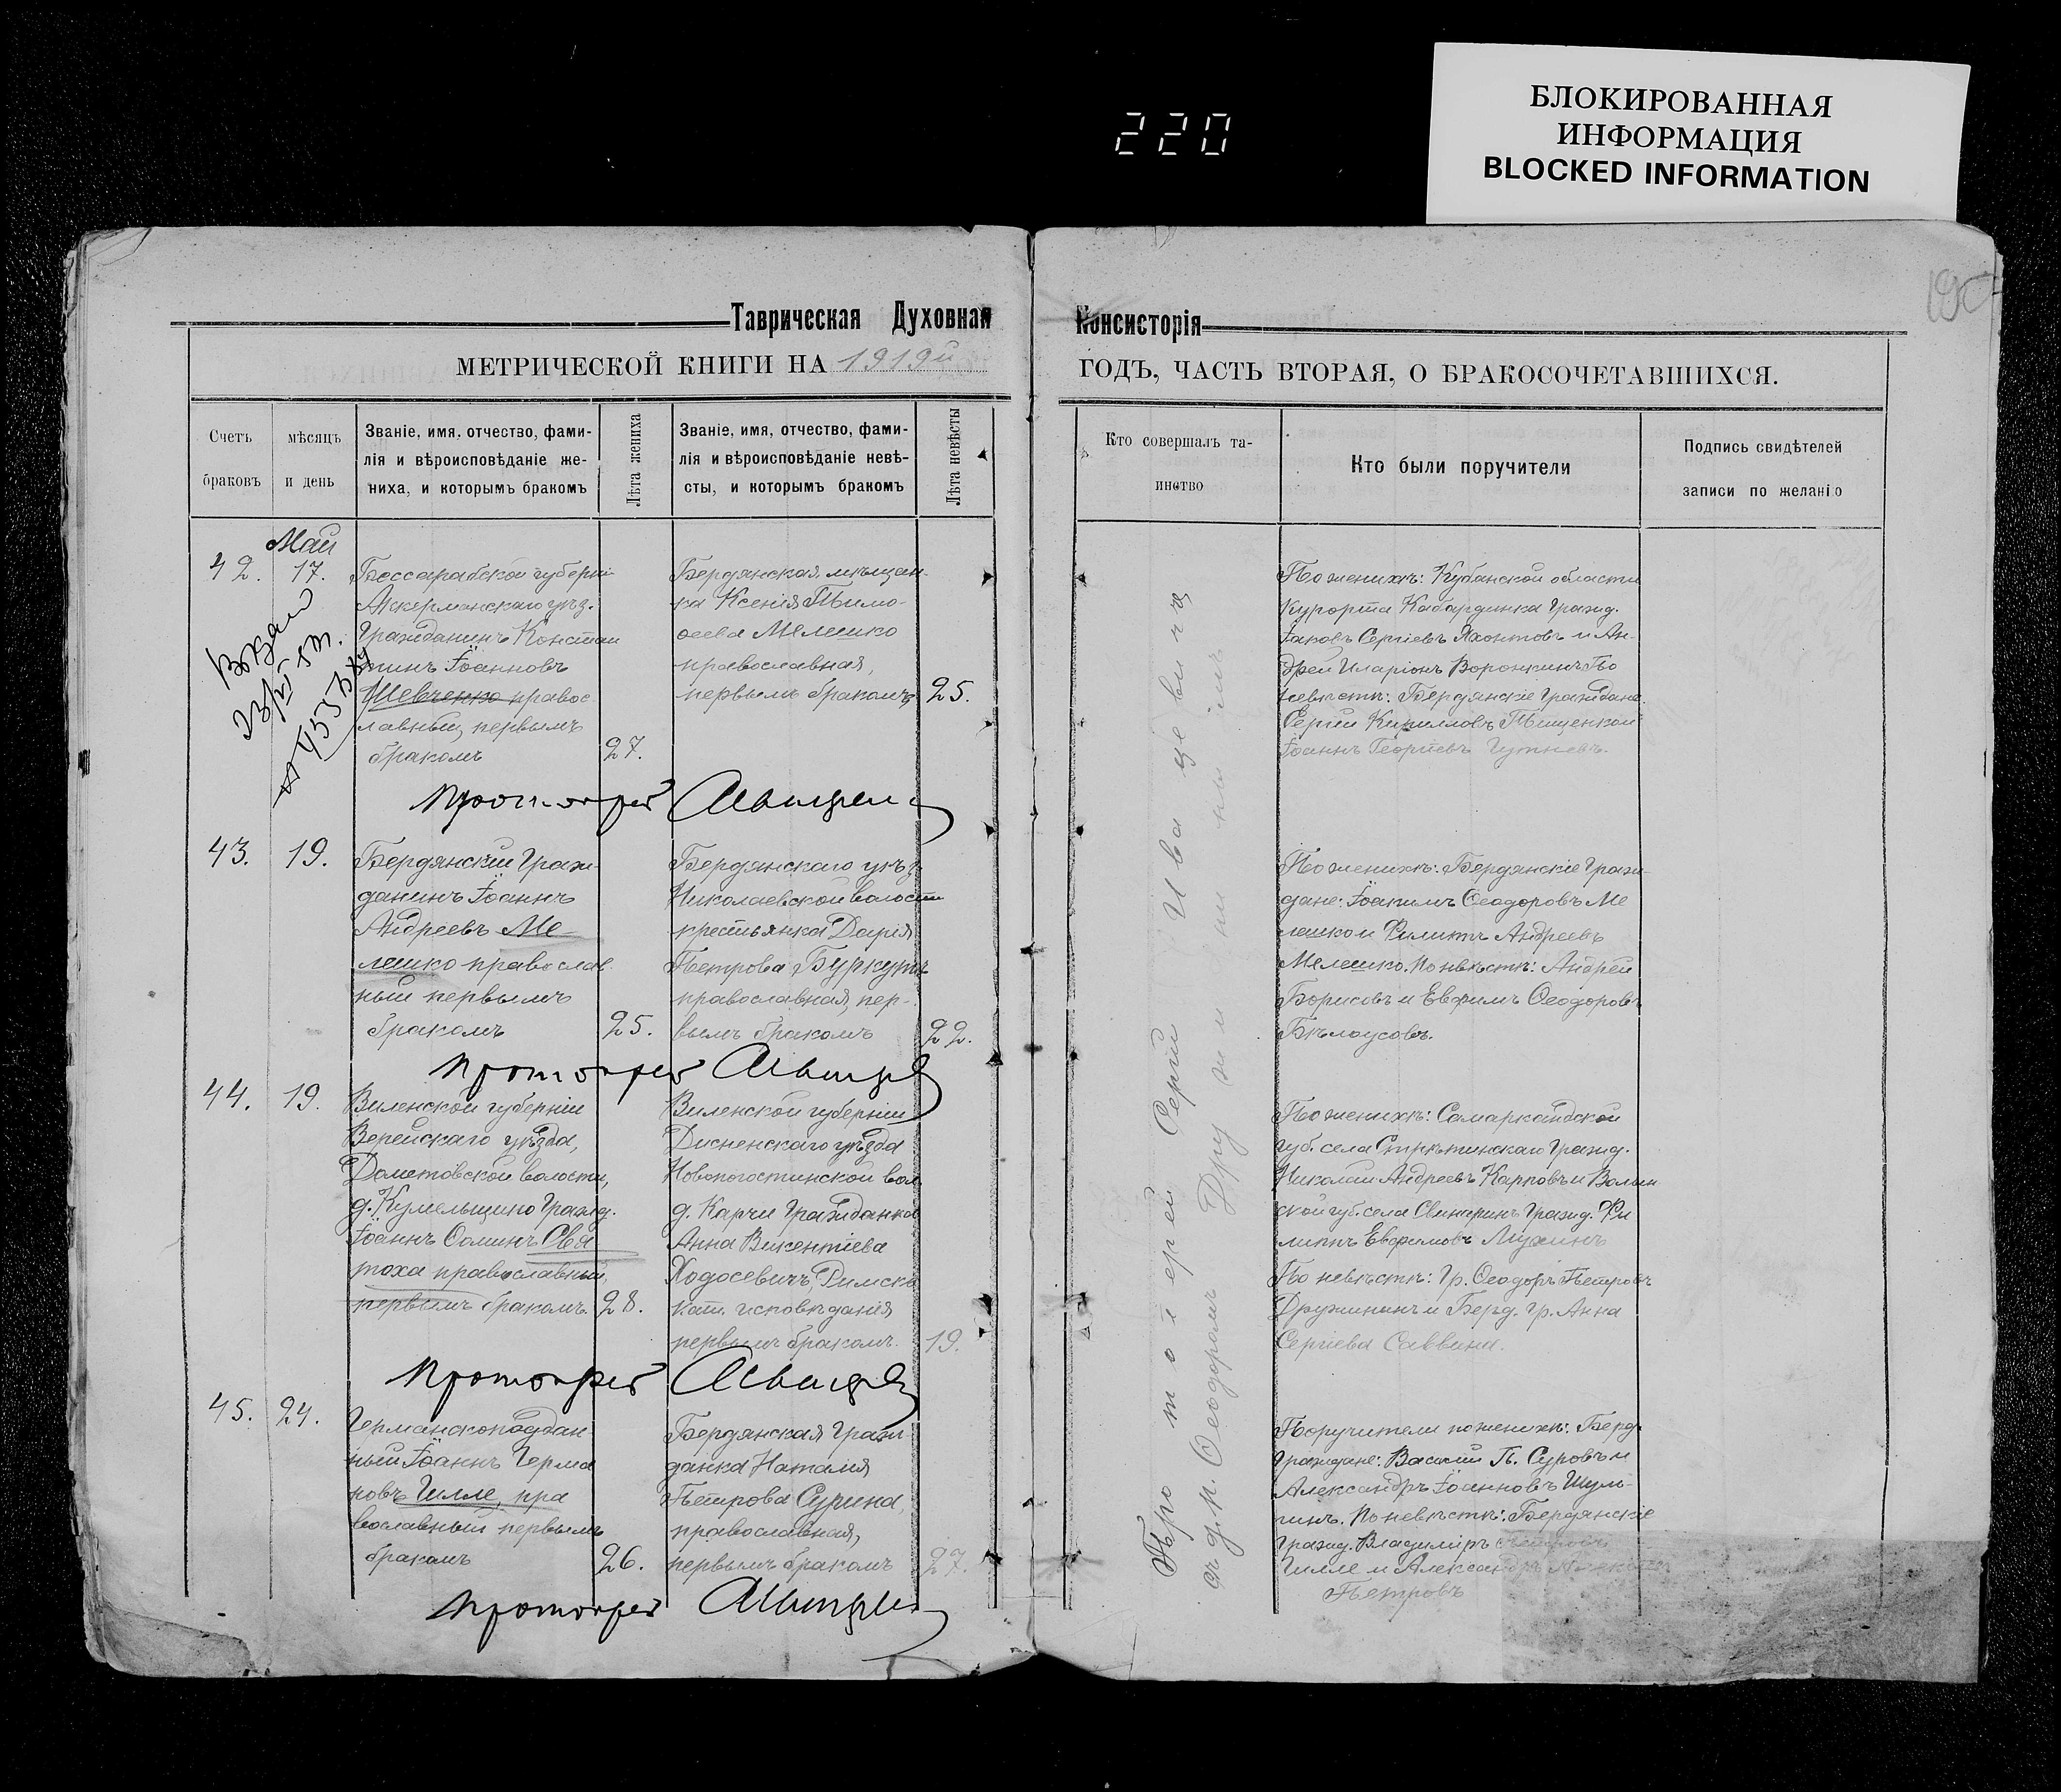 220
БЛОКИРОВАННАЯ
ИНФОРМАЦИЯ
BLOCKED INFORMATION
Таврическая Духовная Консисторія
МЕТРИЧЕСКОЙ КНИГИ НА 1919й ГОДЪ, ЧАСТЬ ВТОРАЯ, О БРАКОСОЧЕТАВШИХСЯ.
Счетъ
браковъ
мѣсяцъ
и день
Званіе, имя, отчество, фами-
лія и вѣроисповѣданіе же-
ниха, и которымъ бракомъ
Лѣта жениха
Званіе, имя, отчество, фами-
лія и вѣроисповѣданіе невѣ-
сты, и которымъ бракомъ
Лѣта невѣсты
Кто совершалъ та-
инство
Кто были поручители
Подпись свидѣтелей
записи по желанію
Май
42.
17.
Бессарабской губерніи
Аккерманскаго уѣз.
Гражданинъ Констан
тинъ Іоанновъ
Шевченко правос
лавный, первымъ
бракомъ
27.
Бердянская мѣщан-
ка Ксенія Тимо-
ѳеева Мелешко
православная,
первымъ бракомъ
25.
По женихѣ: Кубанской области
Курорта Кабардинка гражд.
Іаковъ Сергіевъ Яхонтовъ и Ан-
дрей Иларіонъ Воронкинъ По
невѣстѣ: Бердянскіе граждане
Сергій Кирилловъ Тищенко и
Іоаннъ Георгіевъ
Протоіерей
43.
19.
Бердянскій граж-
данинъ Іоаннъ
Андреевъ Ме-
лешко православ
ный первымъ
бракомъ
25.
Бердянскаго уѣз.
Николаевской волости
крестьянка Дарія
Петрова Буркутъ
православная, пер-
вымъ бракомъ
22.
По женихѣ: Бердянскіе граж-
дане: Іоакимъ Ѳеодоровъ Ме
лешко и Филиппъ Андреевъ
Мелешко. По невѣстѣ: Андрей
Борисовъ и Евфимъ Ѳеодоровъ
Бѣлоусовъ.
Протоіерей
44.
19.
Виленской губерніи
Верейскаго уѣзда,
волости,
гражд.
Іоаннъ Ѳоминъ Свя
тоха православный,
первымъ бракомъ
28.
Виленской губерніи
Дисненскаго уѣзда
Новопогостинской вол.
д. Карчи гражданка
Анна Викентіева
Ходосевичъ Римско
кат. исповѣданія
первымъ бракомъ.
19.
По женихѣ: Самаркандской
губ. села гражд.
Николай Андреевъ Карповъ и Волын
ской губ. села Свинаринъ гражд. Фи
липпъ Евфимовъ Мухинъ
По невѣстѣ: Гр. Ѳеодоръ Петровъ
Дружининъ и Берд. гр. Анна
Сергіева Саввина.
Протоіерей
45.
24.
Германскоподдан-
ный Іоаннъ Герма
новъ Гилле, пра
вославный первымъ
бракомъ
26.
Бердянская граж-
данка Наталія
Петрова Сурина,
православная,
первымъ бракомъ
27.
Поручители по женихѣ: Берд.
граждане: Василій П. Суровъ и
Александръ Іоанновъ Шуль-
гинъ. По невѣстѣ: Бердянскіе
гражд. Владиміръ
Гилле и Александръ
Петровъ
Протоіерей
Протоіерей Сергій Иващевичъ
съ д. п. Ѳеодоромъ Дружининымъ